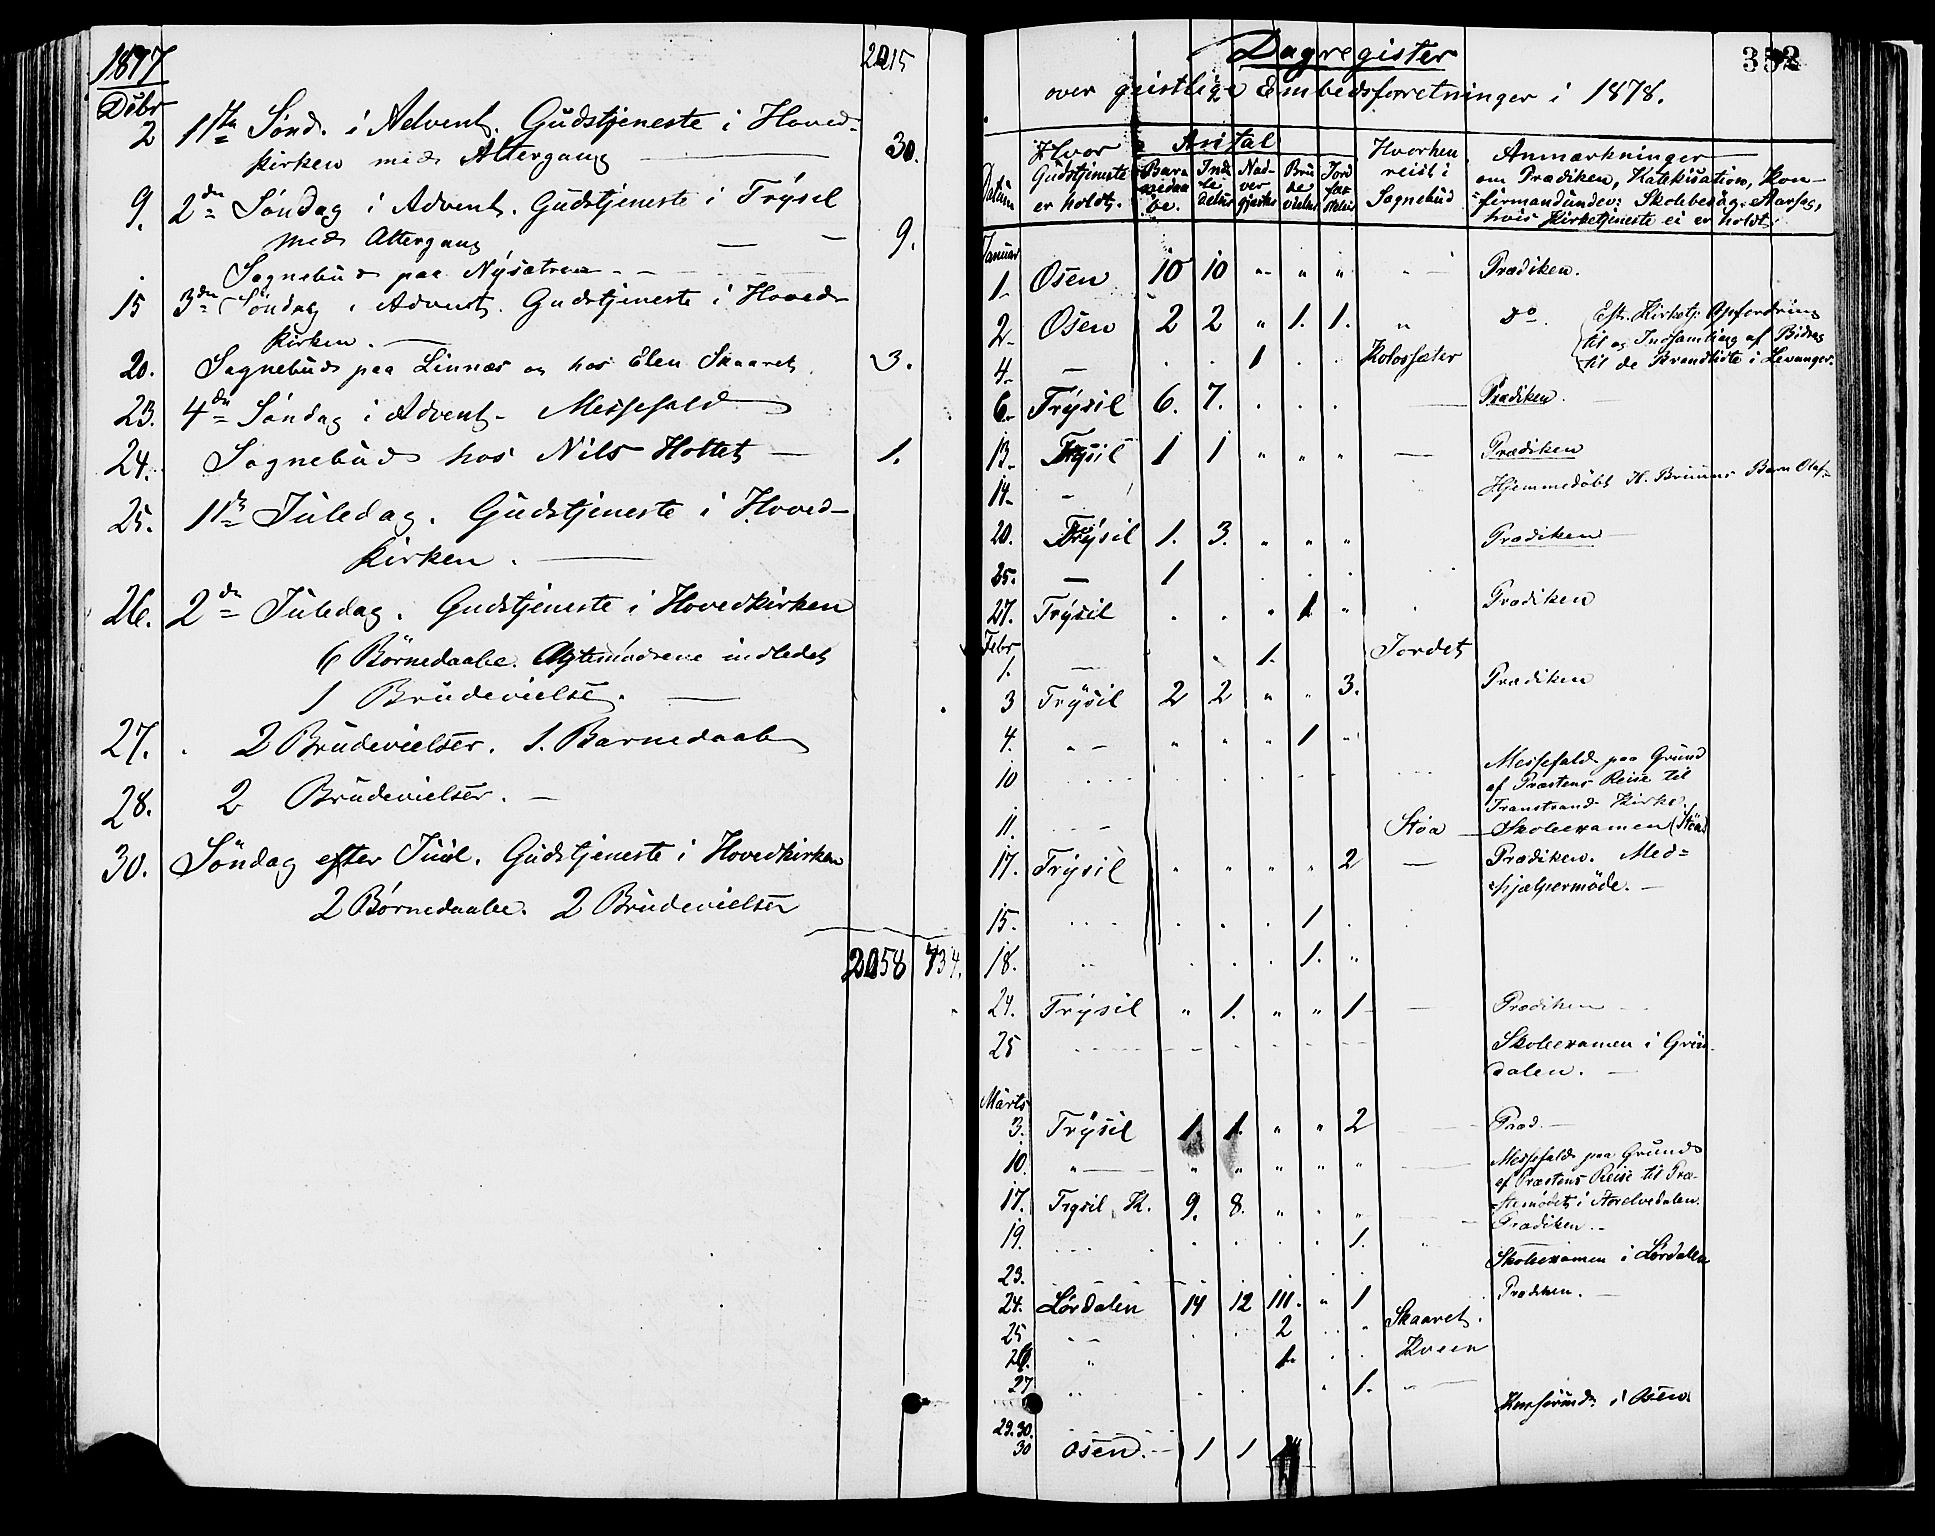 1877
2015
Dcbr
2 1ste Sønd. i Advent. Gudstjeneste i Hoved-
kirken med Altergang — 30.
9. 2den Søndag i Advent. Gudstjeneste i Trysil
med Altergang — 9.
Sognebud paa Nysætren
15 3die Søndag i Advent. Gudstjeneste i Hoved-
kirken. —
20. Sognebud paa Linnæs og hos Elen Skaaret. 3.
23. 4de Søndag i Advent - Messefald
24. Sognebud hos Nils Holtet — 1.
25. 1ste Juledag. Gudstjeneste i Hoved-
kirken. —
26. 2den Juledag. Gudstjeneste i Hovedkirken
6 Børnedaabe. indledet
1 Brudevielse. —
27. 2 Brudevielser. 1. Barnedaab
28. 2 Brudevielser. —
30. Søndag efter Juul. Gudstjeneste i Hovedkirken
2 Børnedaabe. 2 Brudevielser
2058 434.
Dagregister 352
over geistlige Embedsforretninger i 1878.
Datum Hvor Gudstjeneste er holdt. Antal Barnedaabe. Indledelser Nadvergjester Brudevielser Jordfæstelser Hvorhen reist i Sognebud Anmærkninger
om Prædiken, Katekisation, Kon-
firmandunder: Skolebesøg. Aarsag,
hvis Kirketjeneste ei er holdt.
Januar
1. Osen 10 10 " " " " — Prædiken.
2. Osen 2 2 " 1. 1. " do. Eft. Kirketj. Opfordring
til og Indsamling af Bidrag
til de Brandlidte i Levanger.
4. — 1 Kolossæter
6. Trysil 6. 7. . . . — Prædiken.
13. Trysil 1 1 " " " — Prædiken
14. — Hjemmedøbt H. Bruuns Barn Olaf
20. Trysil 1. 3. " " " Prædiken —
25. — 1
27. Trysil . . " 1 " Prædiken
Febr
1. — 1. Jordet
3 Trysil 2 2 " " 3. Prædiken
4. " — " " " 1 "
10 Messefald paa Grund
af Præstens Reise til
Transtrand Kirke.
11. Støa — Skoleexamen (Støa)
17. Trysil " " " " 2 — Prædiken. Med-
hjælpermøde. —
15. 1
18. 1. "
24. Trysil " 1. " " 1 — Prædiken —
25 Skoleexamen i Grøn-
dalen. —
Marts
3. Trysil 1. 1. " " 2 — Præd. —
10. " — " " " " " — Messefald paa Grund
af Præstens Reise til Præ-
stemødet i Storelvedalen.
17. Trysil K. 9. 8. " . " — Prædiken. —
19. 1.
23. Skoleexamen i Lørdalen
24. Lørdalen 14 12 111. " 1 Prædiken. —
25 — 2 Skaaret.
26. " 1. Kveen
27 1. " —
29. 30. i Osen
30 Osen. — 1 1